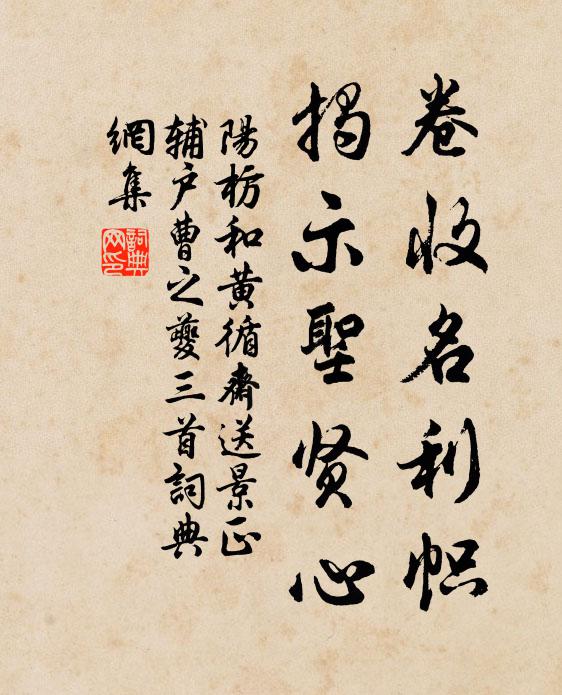 卷收名利帜
揭示聖贤心
陽枋和黄循齋送景正
辅户曹之夔三首詞典
網集
詞典网印